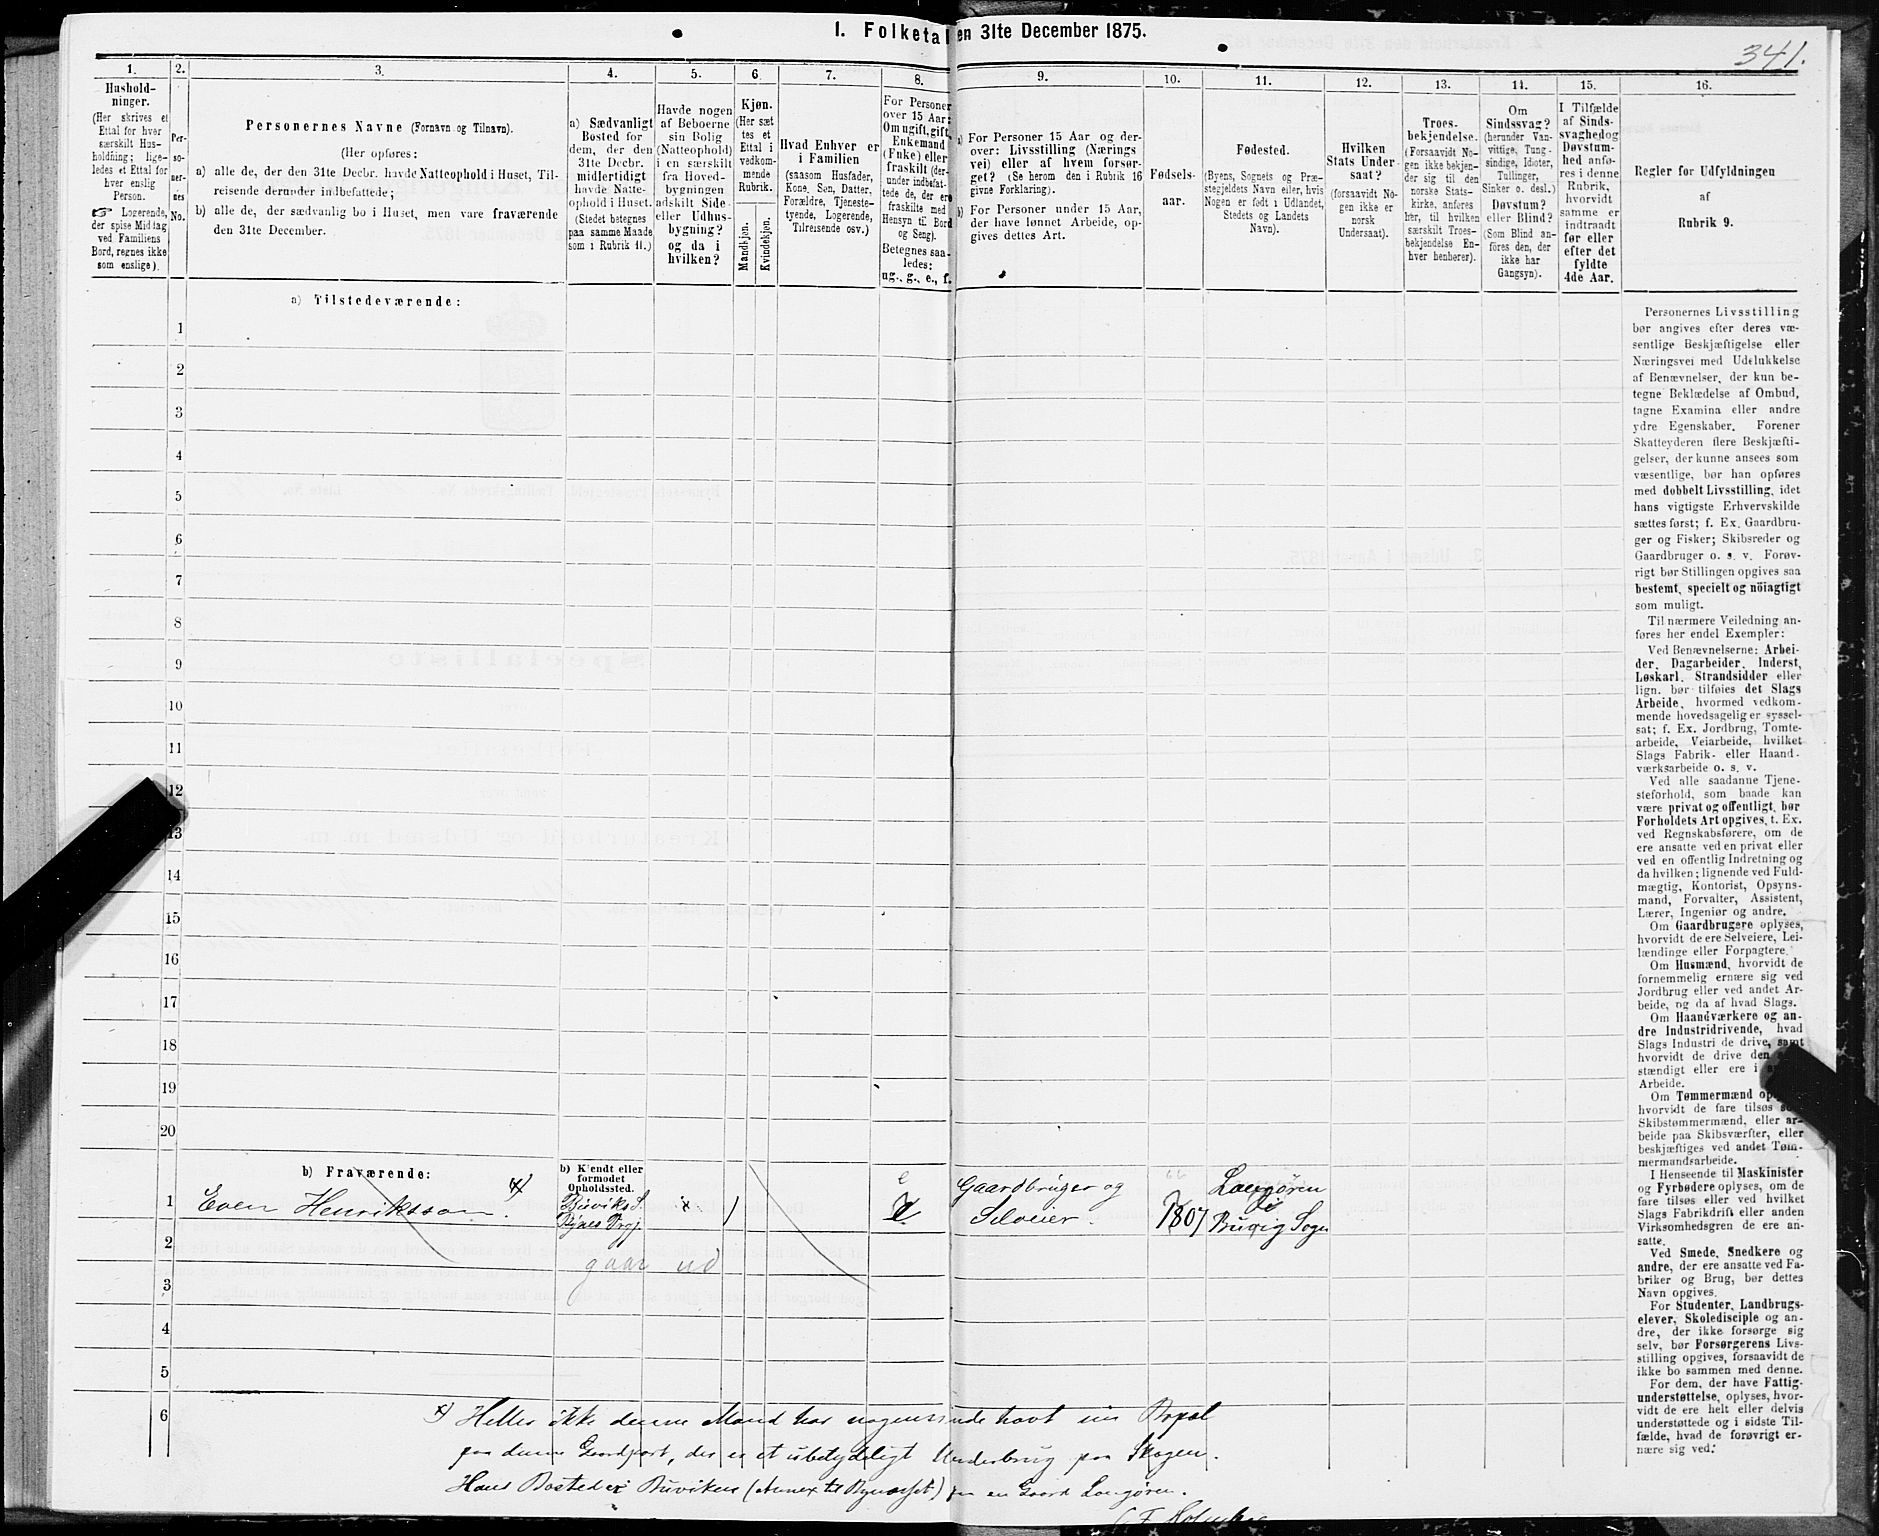 1. Folketal den 31te December 1875.
341.
1.
2.
3.
4.
5.
6.
7.
8.
9.
10.
11.
12.
13.
14.
15.
16.
Hushold-
ninger.
(Her skrives et
Ettal for hver
særskilt Hus-
holdning; lige-
ledes et Ettal for
hver enslig
Person.
☞ Logerende,
der spise Middag
ved Familiens
Bord, regnes ikke
som enslige).
Per-
so-
ner-
nes
No.
Personernes Navne (Fornavn og Tilnavn).
(Her opføres:
a) alle de, der den 31te Decbr. havde Natteophold i Huset, Til-
reisende derunder indbefattede;
b) alle de, der sædvanlig bo i Huset, men vare fraværende
den 31te December.
a) Sædvanligt
Bosted for
dem, der den
31te Decbr.
midlertidigt
havde Natte-
ophold i Huset.
(Stedet betegnes
paa samme Maade
som i Rubrik 11.)
Havde nogen
af Beboerne
sin Bolig
(Natteophold)
i en særskilt
fra Hoved-
bygningen
adskilt Side-
eller Udhus-
bygning?
og da i
hvilken?
Kjøn.
(Her sæt
tes et
Ettal i
vedkom-
mende
Rubrik.
Mandkjøn.
Kvindekjøn.
Hvad Enhver er
i Familien
(saasom Husfader,
Kone, Søn, Datter,
Forældre, Tjeneste-
tyende, Logerende,
Tilreisende osv.)
For Personer
over 15 Aar:
Om ugift, gift,
Enkemand
(Enke) eller
fraskilt (der-
under indbefat-
tede de, der ere
fraskilte med
Hensyn til Bord
og Seng).
Betegnes saa-
ledes:
ug., g., e., f.
a) For Personer 15 Aar og der-
over: Livsstilling (Nærings
vei) eller af hvem forsør-
get? (Se herom den i Rubrik 16
givne Forklaring).
b) For Personer under 15 Aar,
der have lønnet Arbeide, op-
gives dettes Art.
Fødsels-
aar.
Fødested.
(Byens, Sognets og Præ-
stegjeldets Navn eller, hvis
Nogen er født i Udlandet,
Stedets og Landets
Navn).
Hvilken
Stats Under-
saat?
(forsaavidt No-
gen ikke er
norsk
Undersaat).
Troes-
bekjendelse.
(Forsaavidt No-
gen ikke bekjen-
der sig til den
norske Stats-
kirke, anføres
her, til hvilken
særskilt Troes-
bekjendelse En-
hver henhører).
Om
Sindssvag?
(herunder Van-
vittige, Tung-
sindige, Idioter,
Tullinger,
Sinker o. desl.)
Døvstum?
eller Blind?
(Som Blind an-
føres den, der
ikke har
Gangsyn).
I Tilfælde
af Sinds-
svaghed og
Døvstum-
hed anfø-
res i denne
Rubrik,
hvorvidt
samme er
indtraadt
før eller
efter det
fyldte
4de Aar.
Regler for Udfyldningen
af
Rubrik 9.
a) Tilstedeværende:
1
2
3
4
5
6
7
8
9
10
11
12
13
14
15
16
17
18
19
20
Personernes Livsstilling
bør angives efter deres væ-
sentlige Beskjæftigelse eller
Næringsvei med Udelukkelse
af Benævnelser, der kun be-
tegne Beklædelse af Ombud,
tagne Examina eller andre
ydre Egenskaber. Forener
Skatteyderen flere Beskjæfti-
gelser, der kunne ansees som
væsentlige, bør han opføres
med dobbelt Livsstilling, idet
hans vigtigste Erhvervskilde
sættes først; f. Ex. Gaardbru-
ger og Fisker; Skibsreder og
Gaardbruger o. s. v. Forøv-
rigt bør Stillingen opgives saa
bestemt, specielt og nöiagtigt
som muligt.
Til nærmere Veiledning an-
føres her endel Exempler:
Ved Benævnelserne: Arbei-
der, Dagarbeider, Inderst,
Løskarl, Strandsidder eller
lign. bør tilføies det Slags
Arbeide, hvormed vedkom-
mende hovedsagelig er syssel-
sat; f. Ex. Jordbrug, Tomte-
arbeide, Veiarbeide, hvilket
Slags Fabrik- eller Haand-
værksarbeide o. s. v.
Ved alle saadanne Tjene-
steforhold, som baade kan
være privat og offentligt, bør
Forholdets Art opgives, t. Ex.
ved Regnskabsførere, om de
ere ansatte ved en privat eller
ved en offentlig Indretning og
da hvilken; lignende ved Fuld-
mægtig, Kontorist, Opsyns-
mand, Forvalter, Assistent,
Lærer, Ingeniør og andre.
Om Gaardbrugere oplyses,
hvorvidt de ere Selveiere, Lei-
lændinge eller Forpagtere.
Om Husmænd, hvorvidt de
fornemmelig ernære sig ved
Jordbrug eller ved andet Ar-
beide, og da af hvad Slags.
Om Haandværkere og an-
dre Industridrivende, hvad
Slags Industri de drive, samt
hvorvidt de drive den
stændigt eller ere i
Arbeide.
Om Tømmermænd
hvorvidt de fare tilsøs
Skibstømmermænd, eller ar-
beide paa Skibsværfter, eller
beskjæftiges ved andet Tøm-
mermandsarbeide.
I Henseende til Maskinister
og Fyrbødere oplyses, om de
fare tilsøs eller ved hvilket
Slags Fabrikdrift eller anden
Virksomhedsgren de ere an-
satte.
Ved Smede, Snedkere og
andre, der ere ansatte ved Fa-
briker og Brug, bør dettes
Navn opgives.
For Studenter, Landbrugs-
elever, Skoledisciple og an-
dre, der ikke forsørge sig
selv, bør Forsørgerens Livs-
stilling opgives, forsaavidt de
ikke bo sammen med denne.
For dem, der have Fattig-
understøttelse, oplyses, hvor-
vidt de ere helt eller delvis
understøttede og i sidste Til-
fælde, hvad de forøvrigt er-
nære sig ved.
b) Fraværende:
b) Kjendt eller
formodet
Opholdssted.
1 Even Henriksson. x) Buviks S. x 1 e Gaardbruger og 1807 Langören
Bynes Prgj. Selveier. Buvig Sogn
2
gaar ud
3
4
5
6
x) Heller ikke denne Mand har nogensinde havt sin Bopæl
paa denne Gaardpart, der er et ubetydeligt Underbrug paa Skogen.
Hans Bosted er Buviken (Annex til Bynæsset) paa en Gaard Langören.